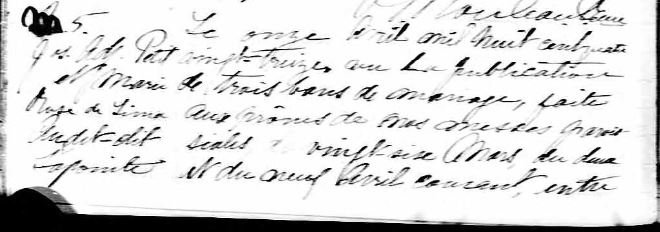 M 5. Le onze Avril mil huit cent quatre
Jos. Ad. Petit vingt-treize, vu la publication
et Marie de trois bans de mariage, faite
Rose de Lima aux prônes de nos messes parois-
Audet-dit siales du vingt six Mars, du deux
Lapointe et du neuf Avril courant, entre